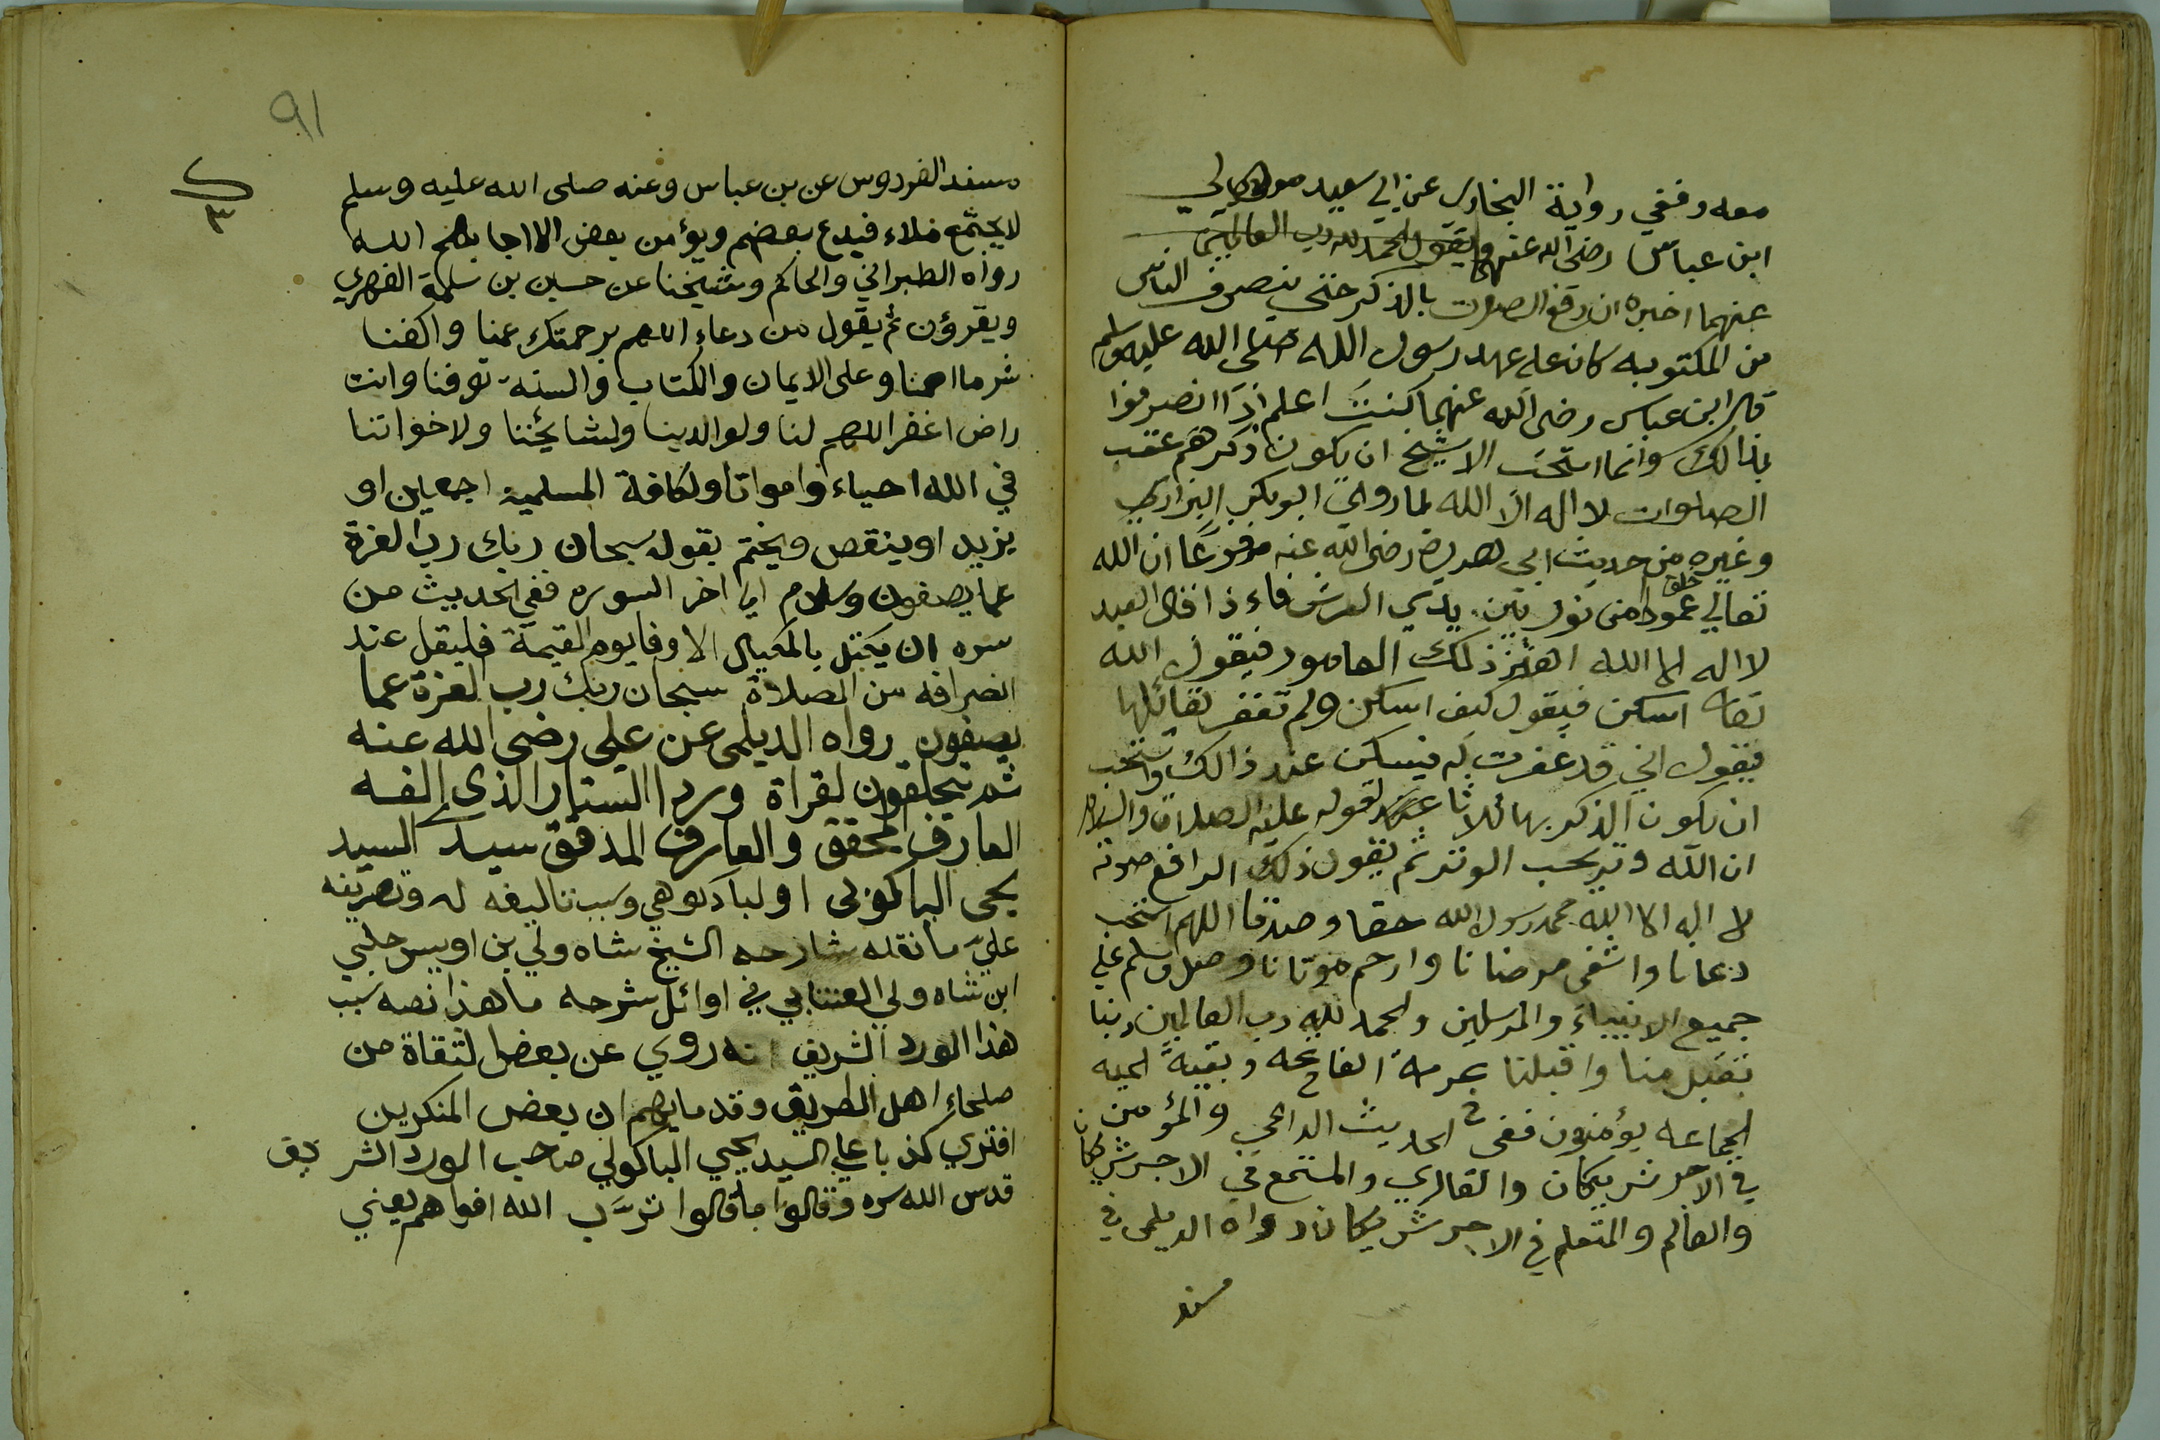 معه وفقي رواية البخاري عن ابي سعيد مولى
ابن عباس رضي الله عنهما ويقول الحمد لله رب العالمين
عنهما اخبره ان رفع الصوت بالذكر حتى ينصرف الناس
من المكتوبه كان على عهد رسول الله صلى الله عليه وسلم
قال ابن عباس رضي الله عنهما كنت اعلم اذا انصرفوا
بذالك وانما استحب الاشيخ ان يكون ذكرهم عقب
الصلوات لا اله الا الله لما روى ابو بكر البزاري
وغيره من حديث ابي هريرة رضي الله عنه مرفوعا ان الله
تعالي خلق عمودا من نور بين يدي العرش فاءذا قال العبد
لا اله الا الله اهتز ذلك العامود فيقول الله
تعا اسكن فيقول كيف اسكن ولم تغفر لقائلها
فيقول اني قد غفرت له فيسكن عند ذالك واستحب
ان يكون الذكر بها ثلاثا لقوله عليه الصلاة والسلام
ان الله وتر يحب الوتر ثم يقول ذلك الرافع صوته
لا اله الا الله محمد رسول الله حقا وصدقا اللهم استجب
دعانا واشفى مرضانا وارحم موتانا وصل وسلم على
جميع الانبياء والمرسلين والحمد لله رب العالمين ربنا
تقبل منا واقبلنا بحرمة الفاتحه وبقية
الجماعه يؤمنون ففي الحديث الداعي والمؤمن
في الاجر شريكان والقاري والمستمع في الاجر شريكان
والعالم والمتعلم في الاجر شريكان رواه الديلمي في
مسند
91
مسند الفردوس عن بن عباس وعنه صلى الله عليه وسلم
لا يجتمع ملاء فيدع بعضهم ويؤمن بعض الا اجابهم الله
رواه الطبراني والحاكم وشيخنا عن حسين بن سلمة الفهري
ويقرؤن ثم يقول من دعاء اللهم برحمتك عمنا واكفنا
شر ما اهمنا وعلى الايمان والكتاب والسنة توفنا وانت
راض اغفر اللهم لنا ولوالدينا ولمشائخنا ولاخواتنا
في الله احياء وامواتا ولكافة المسلمين اجمعين او
يزيد او ينقص ويختم بقوله سبحان ربك رب العزة
عما يصفون وسلام الى اخر السوره ففي الحديث من
سره ان يكتل بالمكيال الاوفا يوم القيمة فليقل عند
انصرافه من الصلاة سبحان ربك رب العزة عما
يصفون رواه الديلمي عن علي رضي الله عنه
ثم يتحلقون لقراة ورد الستار الذي الفه
العارف المحقق والعارف المدقق سيد السيد
يحى الباكوني وسبب تاليفه له وتصريفه
على ما نقله شارحه الشيخ شاه ولي بن اويس جلبي
ابن شاه ولي العنتابي في اوائل شرحه ما هذا نصه سبب
هذا الورد الشريف انه روي عن بعض الثقاة من
صلحاء اهل الطريق وقدمايهم ان بعض المنكرين
افتري كذبا على السيد يحيي الباكولي صاحب الورد الشر يف
قدس الله سره وقالوا ما قالوا ترب الله افواههم يعني